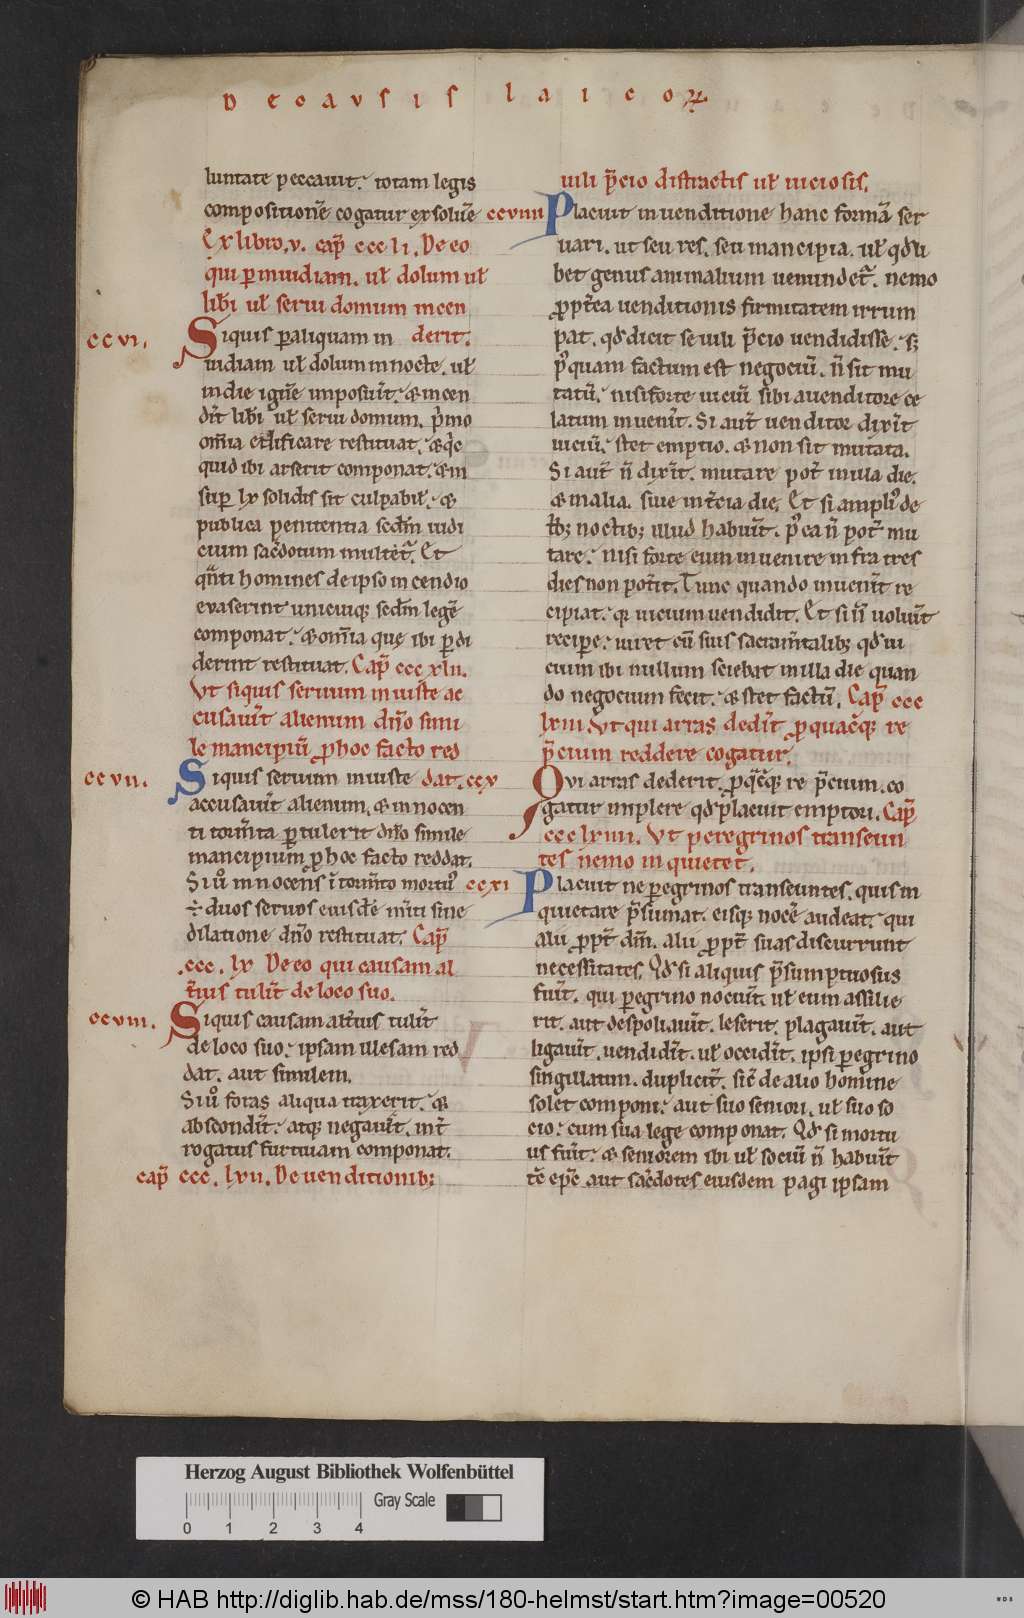 D E CAVSIS laicoꝝ
luntate peccauit. totam legis
compositionē cogatur exsoluere
Ex libro .v. cap̄ cccli. De eo
qui p̱ inuidiam. uł dolum uł
lib̄i uł serui domum incen
derit.
ccvi.
Siquis p̱ aliquam in
uidiam uł dolum in nocte. uł
in die ignē imposuer̄it. & incen
dit̄ lib̄i uł serui domum. p̄mo
om̄ia edificare restituat. & q̄c
quid ibi arserit componat. & in
sup̱ lx solidis sit culpabił. &
publica penitentia sedm̄ iudi
cium sac̄dotum multet̄. Et
qn̄ti homines de ipso incendio
evaserint unicuiq; sedm̄ legē
componat. & om̄ia quę ibi p̱di
derint restituat. Cap̄ cccxlii.
Vt siquis seruum iniuste ac
cusauit̄ alienum dn̄o simi
le mancipiū p̱ hoc facto red
dat. ccx
ccvii.
Siquis seruum iniuste
accusauit̄ alienum. & innocen
ti torm̄ta p̱tulerit dn̄o simile
mancipium p̱ hoc facto reddat.
Siuo innocens ī torm̄to mortuꝰ
÷ duos seruos eiusdē m̄iti sine
dilatione dn̄o restituat. Cap̄
.ccc. lx De eo qui causam al
t̄ius tulit̄ de loco suo.
ccviii.
Siquis causam alt̄ius tulit̄
de loco suo. ipsam illesam red
dat. aut similem.
Siuo foras aliqua traxerit. &
abscondit̄. atq; negauit̄. int̄
rogatus furtiuam componat.
cap̄ ccc. lvii. De uenditionib;
uili p̄cio distractis uł uiciosis.
ccviiii
Placuit in uenditione hanc formā ser
uari. ut seu res. seu mancipia. uł qđli
bet genus animalium uenundet̄. nemo
p̱pt̄ea uenditionis firmitatem irrum
pat. qđ dicit se uili p̄cio uendidisse. s;
pꝰquam factum est negociū. n̄ sit mu
tatū. nisi forte uiciū sibi auenditore ce
latum inuenit̄. Si aut̄ uenditor dixit̄
uiciū. stet emptio. & non sit mutata.
Si aut̄ n̄ dixit̄. mutare pot̄ in illa die.
& in alia. siue in t̄cia die. Et si ampliꝰ de
t̄b; noctib; illud habuit̄. pꝰea n̄ pot̄ mu
tare. nisi forte eum inuenire infra tres
dies non potit̄. Tunc quando inuenit̄ re
cipiat. q̄ uicium uendidit. Et si n̄ uoluit̄
recipe. iuret cū suis sacram̄talib; qđ ui
cium ibi nullum sciebat in illa die quan
do negocium fecit. & stet factū. Cap̄ ccc
lxiii. Vt qui arras dedit̄ p̱ quacq; re
p̄cium reddere cogatur.
Qvi arras dederit. p̱ q̄cq; re p̄cium. co
gatur implere qđ placuit emptori. Cap̄
ccclxiiii. Vt peregrinos transeun
tes nemo inquietet.
ccxi
Placuit ne p̱egrinos transeuntes. quis in
quietare p̄sumat. eisq; nocē audeat. qui
alii p̱pt̄ dm̄. alii p̱pt̄ suas discurrunt
necessitates. Qđ si aliquis p̄sumptuosus
fuit̄. qui p̱egrino nocuit̄. uł eum assilie
rit. aut despoliauit̄. leserit. plagauit̄. aut
ligauit̄. uendidit̄. uł occidit̄. ipsi p̱egrino
singillatim. duplicit̄. sic̄ de alio homine
solet componi. aut suo seniori. uł suo so
cio. cum sua lege componat. Qđ si mortu
us fuit̄. & seniorem ibi uł sociū n̄ habuit̄
tē epc̄ aut sac̄dotes eiusdem pagi ipsam
Herzog August Bibliothek Wolfenbüttel
Gray Scale
0 1 2 3 4
© HAB http://diglib.hab.de/mss/180-helmst/start.htm?image=00520